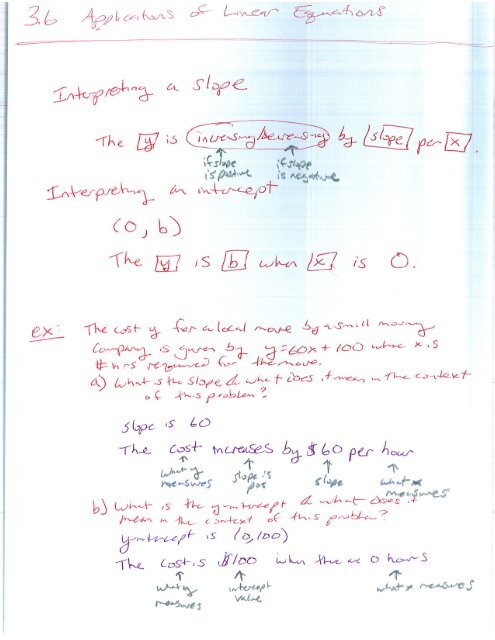 3.6 Applications of Linear Equations
Interpreting a slope
The [y] is (increasing/decreasing) by [slope] per [x].
if slope is positive
if slope is negative
Interpreting an intercept
(0, b)
The [y] is [b] when [x] is 0.
ex: The cost y for a local move by a small moving
Company is given by y=60x+100 where x is
# hrs required for the move.
a) What is the slope & what does it mean in the context
of this problem?
slope is 60
The cost increases by $60 per hour
what y measures
slope is pos
slope
what x measures
b) What is the y-intercept & what does it
mean in the context of this problem?
y-intercept is (0,100)
The cost is $100 when there are 0 hours
what y measures
intercept value
what x measures